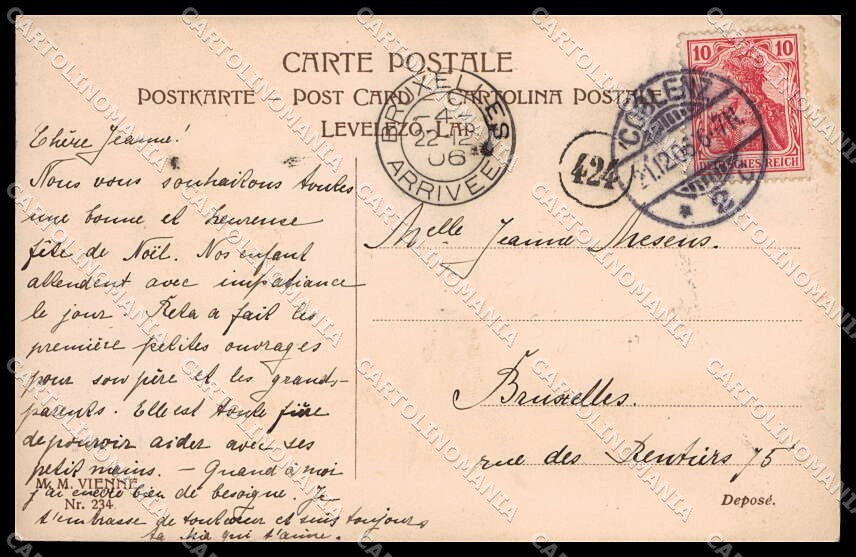 CARTE POSTALE
POSTKARTE POST CARD — CARTOLINA POSTALE
LEVELEZŐ-LAP
BRUXELLES
22-12
06
ARRIVÉE
424
COBLENZ
.12.06.6-7N.
* 2 C
10 10
DEUTSCHES REICH
Chère Jeanne!
Nous vous souhaitons toutes
une bonne et heureuse
fête de Noël. Nos enfant
attendent avec impatiance
le jour. Reta a fait les
première petites ouvrages
pour son père et les grands-
parents. Elle est toute fière
de pouvoir aider avec ses
petit mains. — Quand à moi
j'ai encore bien de besogne. Je
t'embrasse de tout cœur et suis toujours
ta qui t'aime.
M. M. VIENNE
Nr. 234
Melle Jeanne Mesens.
Bruxelles.
rue des Rentiers 75
Deposé.
CARTOLINOMANIA